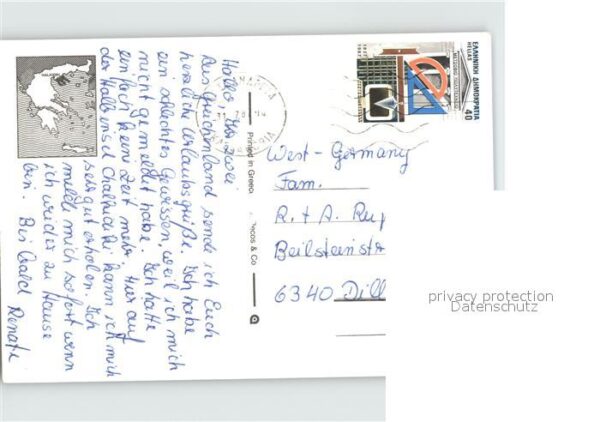 Hallo, Ihr zwei
Aus Griechenland sende ich Euch
herzliche Urlaubsgrüße. Ich habe
ein schlechtes Gewissen, weil ich mich
nicht gemeldet habe. Ich hatte
einfach keine Zeit mehr. Hier auf
der Halbinsel Chalkidiki kann ich mich
sehr gut erholen. Ich
melde mich sofort wenn
ich wieder zu Hause
bin. Bis bald
Renate
Printed in Greece
& Co
ΕΛΛΗΝΙΚΗ ΔΗΜΟΚΡΑΤΙΑ
HELLAS
40
West-Germany
Fam.
R. + A. Rup
Beilsteinstr
6340 Dill
privacy protection
Datenschutz